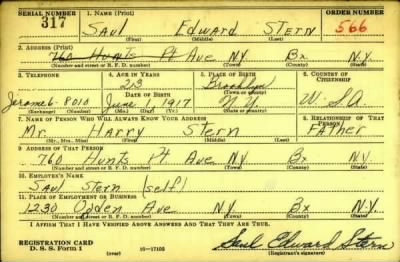 SERIAL NUMBER 1. NAME (Print) ORDER NUMBER
317 SAUL EDWARD STERN 566
(First) (Middle) (Last)
2. ADDRESS (Print)
760 Hunts Pt Ave N.Y. Bx N.Y.
(Number and street or R. F. D. number) (Town) (County) (State)
3. TELEPHONE 4. AGE IN YEARS 5. PLACE OF BIRTH 6. COUNTRY OF CITIZENSHIP
23 Brooklyn
Jerome 6-8010 DATE OF BIRTH (Town or county)
June 1 1917 N.Y. U.S.A.
(Exchange) (Number) (Mo.) (Day) (Yr.) (State or country)
7. NAME OF PERSON WHO WILL ALWAYS KNOW YOUR ADDRESS 8. RELATIONSHIP OF THAT PERSON
Mr. Harry Stern Father
(Mr., Mrs., Miss) (First) (Middle) (Last)
9. ADDRESS OF THAT PERSON
760 Hunts Pt Ave N.Y. Bx N.Y.
(Number and street or R. F. D. number) (Town) (County) (State)
10. EMPLOYER'S NAME
Saul Stern (self)
11. PLACE OF EMPLOYMENT OR BUSINESS
1230 Ogden Ave Bx N.Y.
(Number and street or R. F. D. number) (Town) (County) (State)
I AFFIRM THAT I HAVE VERIFIED ABOVE ANSWERS AND THAT THEY ARE TRUE.
REGISTRATION CARD
D. S. S. FORM 1 (over) 16-17105 Saul Edward Stern
(Registrant's signature)